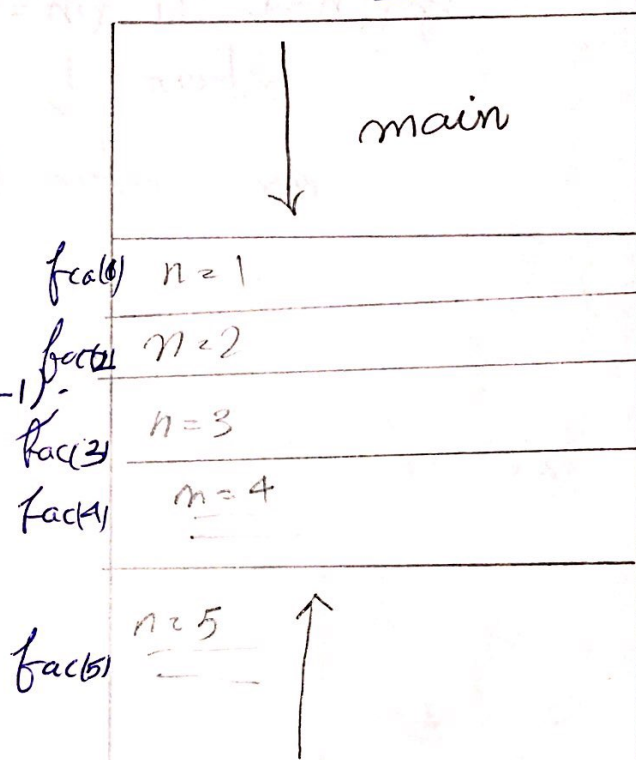 main
fca(1) n = 1
fac(2) n = 2
-1)
fac(3) n = 3
fac(4) n = 4
fac(5) n = 5